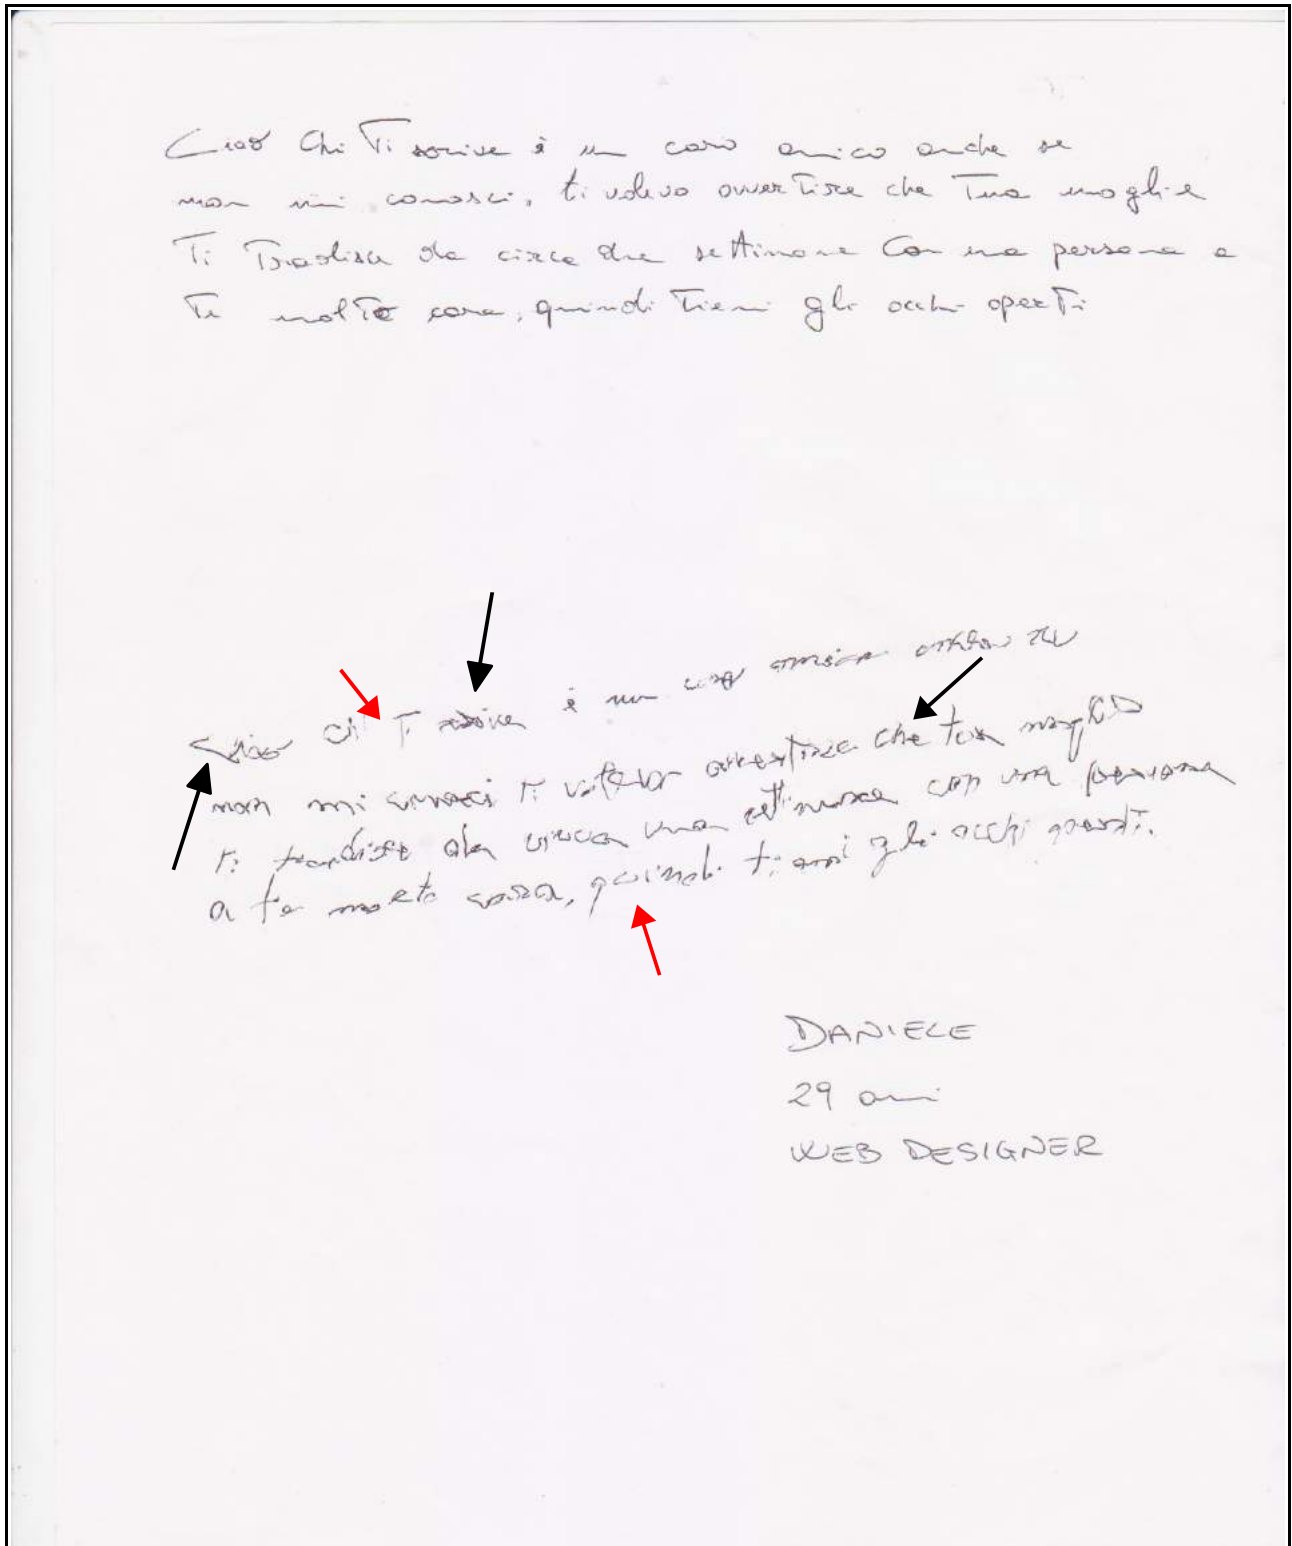 Ciao Chi Ti scrive è un caro amico anche se
non mi conosci, ti volevo avvertire che Tua moglie
Ti Tradisce da circa due settimane Con una persona a
Te molto cara, quindi Tieni gli occhi aperTi
Ciao chi Ti scrive è un caro amico anche se
non mi conosci ti volevo avvertire che tua moglie
ti tradisce da circa una settimana con una persona
a te molto cara, quindi tieni gli occhi aperti.
DANIELE
29 anni
WEB DESIGNER